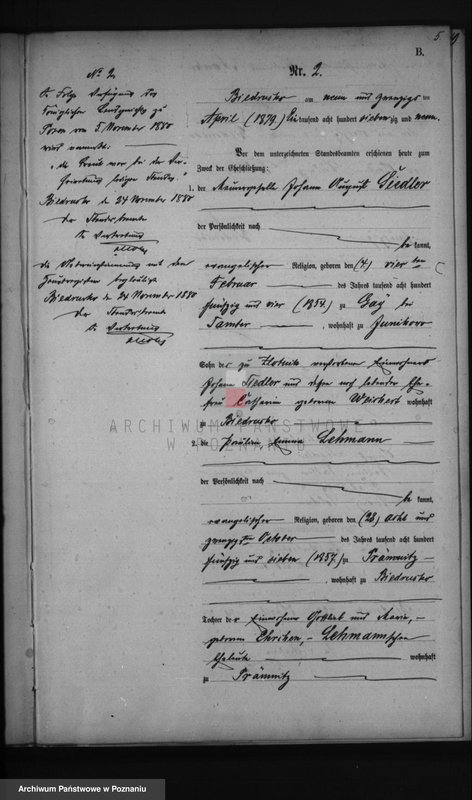 5
B.
Nr. 2.
Biedrusko am neun und zwanzigsten
April (1879) Ein tausend acht hundert siebenzig und neun.
Vor dem unterzeichneten Standesbeamten erschienen heute zum
Zweck der Eheschließung:
1. der Maurergeselle Johann August Siedler
der Persönlichkeit nach
be kannt,
evangelischer Religion, geboren den (4) vierten
Februar des Jahres tausend acht hundert
fünfzig und vier (1854) zu Gay bei
Samter, wohnhaft zu Junikowo
Sohn des zu Zlotnik verstorbenen Einwohners
Johann Siedler und dessen noch lebender Ehe-
frau Catharin geborenen Weichert wohnhaft
zu Biedrusko
2. die Pauline Emma Lehmann
der Persönlichkeit nach
be kannt,
evangelischer Religion, geboren den (28) acht und
zwanzigsten October des Jahres tausend acht hundert
fünfzig und sieben (1857) zu Prämnitz
, wohnhaft zu Biedrusko
Tochter der Einwohner Gottlieb und Maria,
geborenen Lehmannschen
Eheleute wohnhaft
zu Prämnitz
No 2
In Folge Verfügung des
Königlichen Landgerichts zu
Posen vom 5. November 1880
wird vermerkt:
Biedrusko den 24 November 1880
Der Standesbeamte
In Vertretung
Die Übereinstimmung mit dem
Hauptregister beglaubigt
Biedrusko den 24 November 1880
Der Standesbeamte
In Vertretung
ARCHIWUM PAŃSTWOWE
W POZNANIU
Archiwum Państwowe w Poznaniu